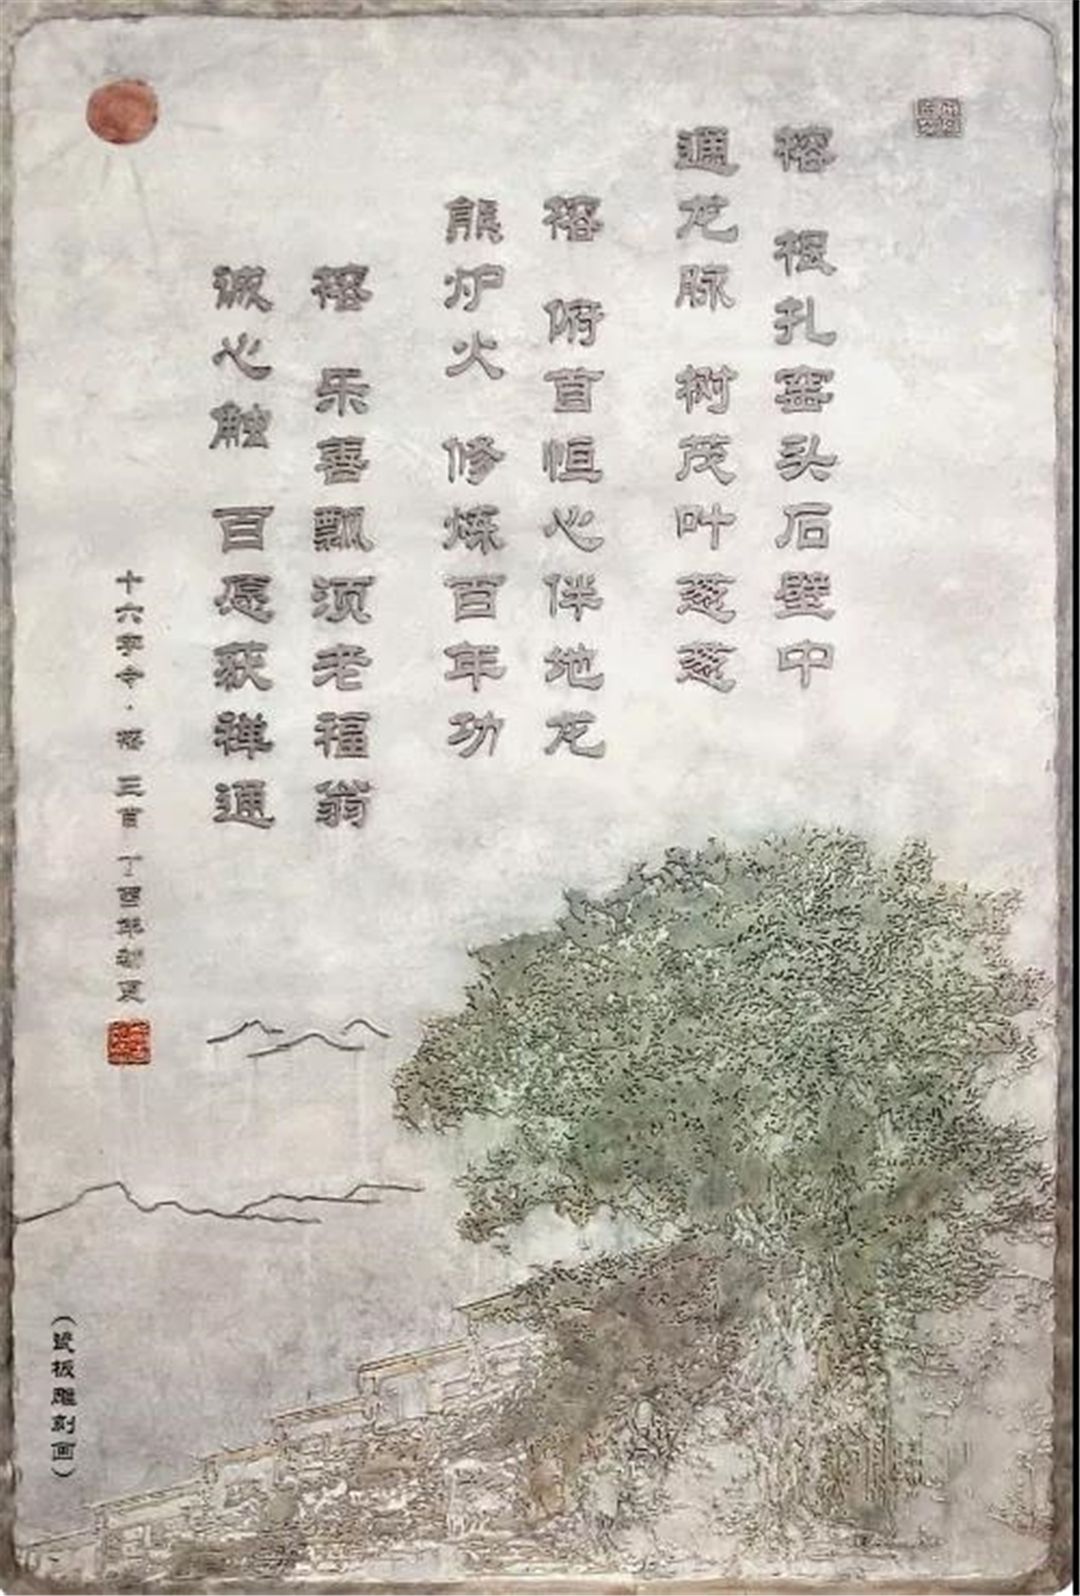 榕 根扎窑头石壁中
通龙脉 树茂叶葱葱
榕 俯首恒心伴地龙
熊炉火 修炼百年功
榕 乐善飘须老福翁
诚心触 百愿获禅通
十六字令·榕 三首 丁酉年初夏
(瓷板雕刻画)